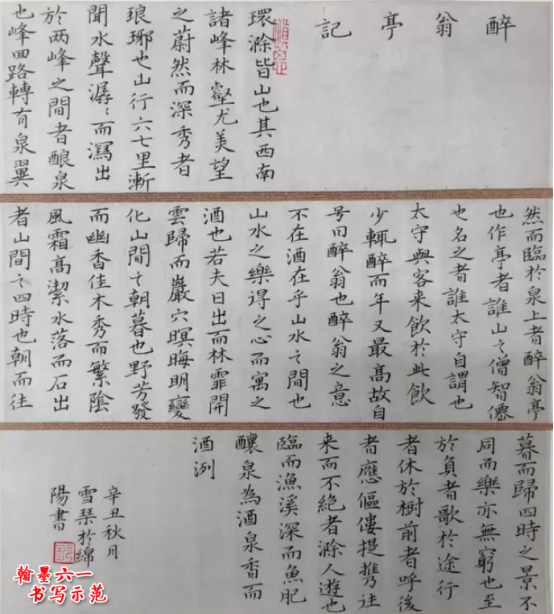 醉翁亭記
環滁皆山也其西南
諸峰林壑尤美望
之蔚然而深秀者
琅琊也山行六七里漸
聞水聲潺〻而瀉出
於两峰之間者酿泉
也峰回路轉有泉翼
然而臨於泉上者醉翁亭
也作亭者誰山之僧智僊
也名之者誰太守自謂也
太守與客来飲於此飲
少輒醉而年又最髙故自
号曰醉翁也醉翁之意
不在酒在乎山水之間也
山水之樂得之心而寓之
酒也若夫日出而林霏開
雲歸而巖穴暝晦明變
化山間之朝暮也野芳發
而幽香佳木秀而繁陰
風霜髙潔水落而石出
者山間之四時也朝而往
暮而歸四時之景不
同而樂亦無窮也至
於負者歌於途行
者休於樹前者呼後
者應傴僂提攜往
来而不絶者滁人遊也
臨而漁溪深而魚肥
釀泉為酒泉香而
酒洌
辛丑秋月
雪琹於綿
陽書
翰墨六一
书写示范